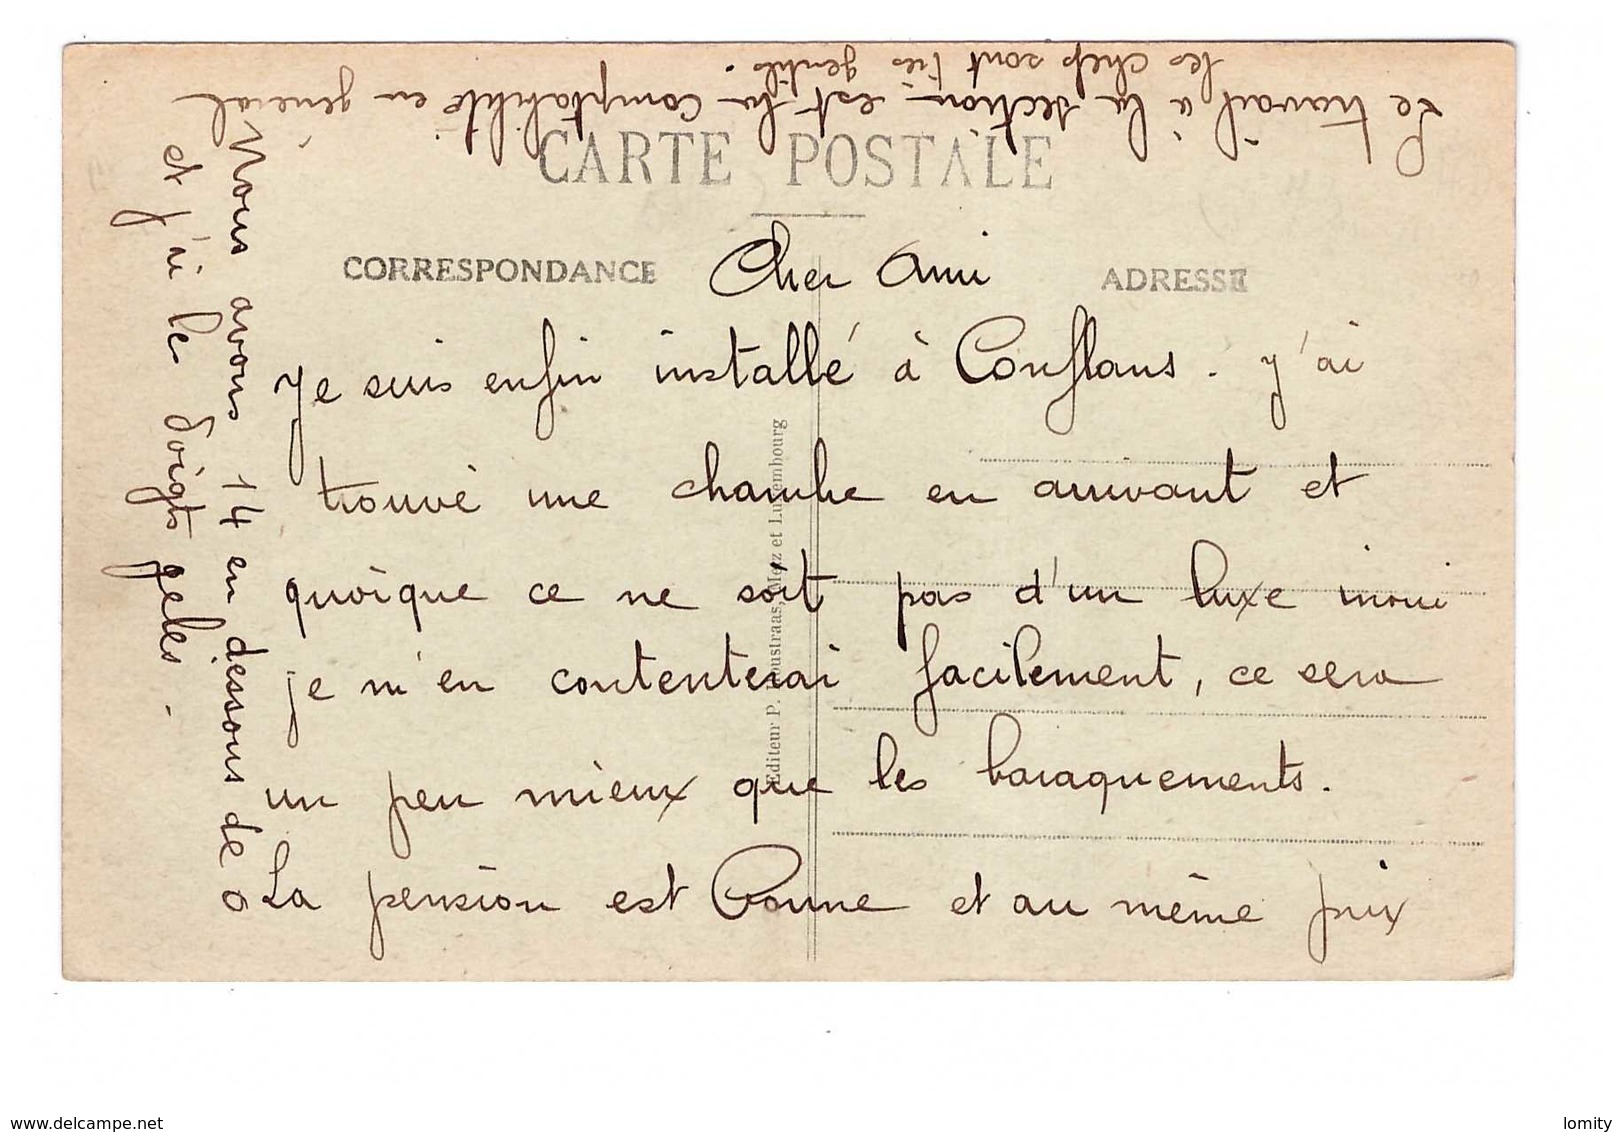 CARTE POSTALE
CORRESPONDANCE
ADRESSE
Cher Ami
Je suis enfin installé à Conflans. J'ai
trouvé une chambre en arrivant et
quoique ce ne soit pas d'un luxe inoui
je m'en contenterai facilement, ce sera
un peu mieux que les baraquements.
La pension est bonne et au même prix
Le travail à la section est la comptabilité en général
les chefs sont très gentils.
Nous avons 14 en dessous de 0
et j'ai le doigts gelés.
Editeur P. Houstraas, Metz et Luxembourg
www.delcampe.net
lomity